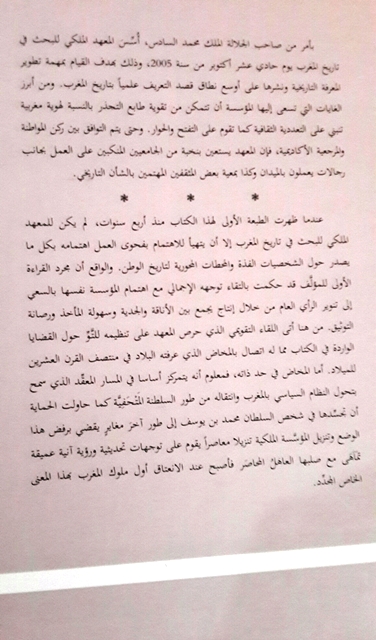 بأمر من صاحب الجلالة الملك محمد السادس، أُسّس المعهد الملكي للبحث في
تاريخ المغرب يوم حادي عشر أكتوبر من سنة 2005، وذلك بهدف القيام بمهمة تطوير
المعرفة التاريخية ونشرها على أوسع نطاق قصد التعريف علمياً بتاريخ المغرب. ومن أبرز
الغايات التي تسعى إليها المؤسسة أن تتمكن من تقوية طابع التجذر بالنسبة لهوية مغربية
تنبني على التعددية الثقافية كما تقوم على التفتح والحوار. وحتى يتم التوافق بين ركن المواطنة
والمرجعية الأكاديمية، فإن المعهد يستعين بنخبة من الجامعيين المنكبين على العمل بجانب
رجالات يعملون بالميدان وكذا بمعية بعض المثقفين المهتمين بالشأن التاريخي.
* * *
عندما ظهرت الطبعة الأولى لهذا الكتاب منذ أربع سنوات، لم يكن للمعهد
الملكي للبحث في تاريخ المغرب إلا أن يتهيأ للاهتمام بفحوى العمل اهتمامه بكل ما
يصدر حول الشخصيات الفذة والمحطات المحورية لتاريخ الوطن. والواقع أن مجرد القراءة
الأولى للمؤلَّف قد حكمت بالتقاء توجهه الإجمالي مع اهتمام المؤسسة نفسها بالسعي
إلى تنوير الرأي العام من خلال إنتاج يجمع بين الأناقة والجدية وسهولة المأخذ ورصانة
التوثيق. من هنا أتى اللقاء التقويمي الذي حرص المعهد على تنظيمه للتَّوّ حول القضايا
الواردة في الكتاب مما له اتصال بالمخاض الذي عرفته البلاد في منتصف القرن العشرين
للميلاد. أما المخاض في حد ذاته، فمعلوم أنه يتمركز أساسا في المسار المعقَّد الذي سمح
بتحول النظام السياسي بالمغرب وانتقاله من طور السلطنة المُتْحَفِيَّة كما حاولت الحماية
أن تجسّدها في شخص السلطان محمد بن يوسف إلى طور آخرَ مغايرٍ يقضي برفض هذا
الوضع وتنزيل المؤسَّسة الملكية تنزيلا معاصراً يقوم على توجهات تحديثية ورؤية آنية عميقة
تماهَى مع صلبها العاهلُ المحاضر فأصبح عند الانعتاق أول ملوك المغرب بهذا المعنى
الخاص المحدَّد.